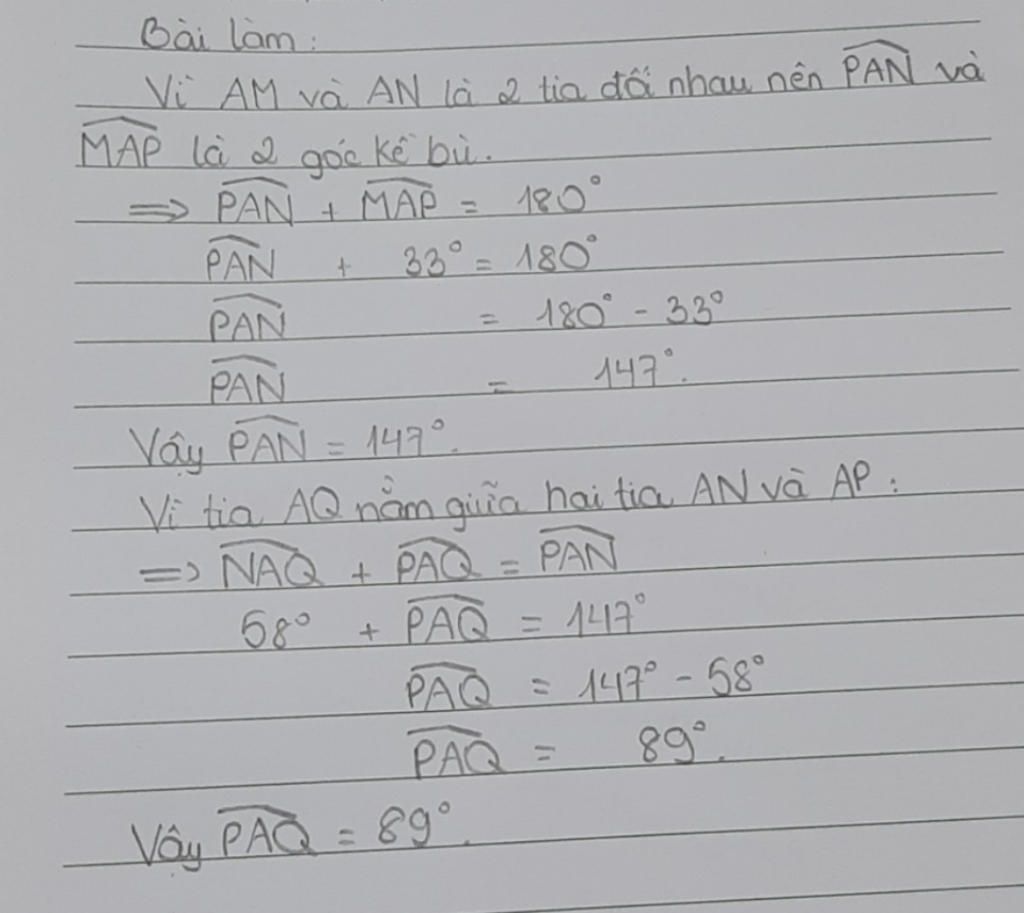 Bài làm:
Vì AM và AN là 2 tia đối nhau nên \widehat{PAN} và
\widehat{MAP} là 2 góc kề bù.
=> \widehat{PAN} + \widehat{MAP} = 180°
\widehat{PAN} + 33° = 180°
\widehat{PAN} = 180° - 33°
\widehat{PAN} = 147°.
Vậy \widehat{PAN} = 147°.
Vì tia AQ nằm giữa hai tia AN và AP:
=> \widehat{NAQ} + \widehat{PAQ} = \widehat{PAN}
58° + \widehat{PAQ} = 147°
\widehat{PAQ} = 147° - 58°
\widehat{PAQ} = 89°.
Vậy \widehat{PAQ} = 89°.